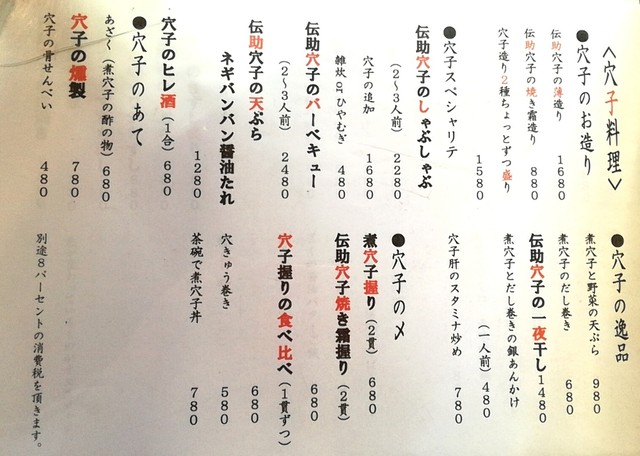 ＜穴子料理＞
●穴子のお造り
伝助穴子の薄造り 1680
伝助穴子の焼き霜造り 880
穴子造り2種ちょっとずつ盛り
1580
●穴子スペシャリテ
伝助穴子のしゃぶしゃぶ
（2～3人前） 2280
穴子の追加 1680
雑炊 or ひやむぎ 480
伝助穴子のバーベキュー
（2～3人前） 2480
伝助穴子の天ぷら
ネギバンバン醤油たれ
1280
穴子のヒレ酒（1合） 680
●穴子のあて
あざく（煮穴子の酢の物） 680
穴子の燻製 780
穴子の骨せんべい 480
●穴子の逸品
煮穴子と野菜の天ぷら 980
煮穴子のだし巻き 680
伝助穴子の一夜干し 1480
煮穴子とだし巻きの銀あんかけ
（一人前） 480
穴子肝のスタミナ炒め 780
●穴子の〆
煮穴子握り（2貫） 680
伝助穴子焼き霜握り（2貫）
680
穴子握りの食べ比べ（1貫ずつ）
680
穴きゅう巻き 580
茶碗で煮穴子丼 780
別途8パーセントの消費税を頂きます。